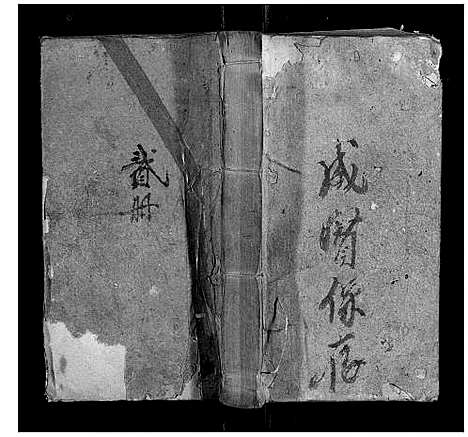 咸賢保存
貳册